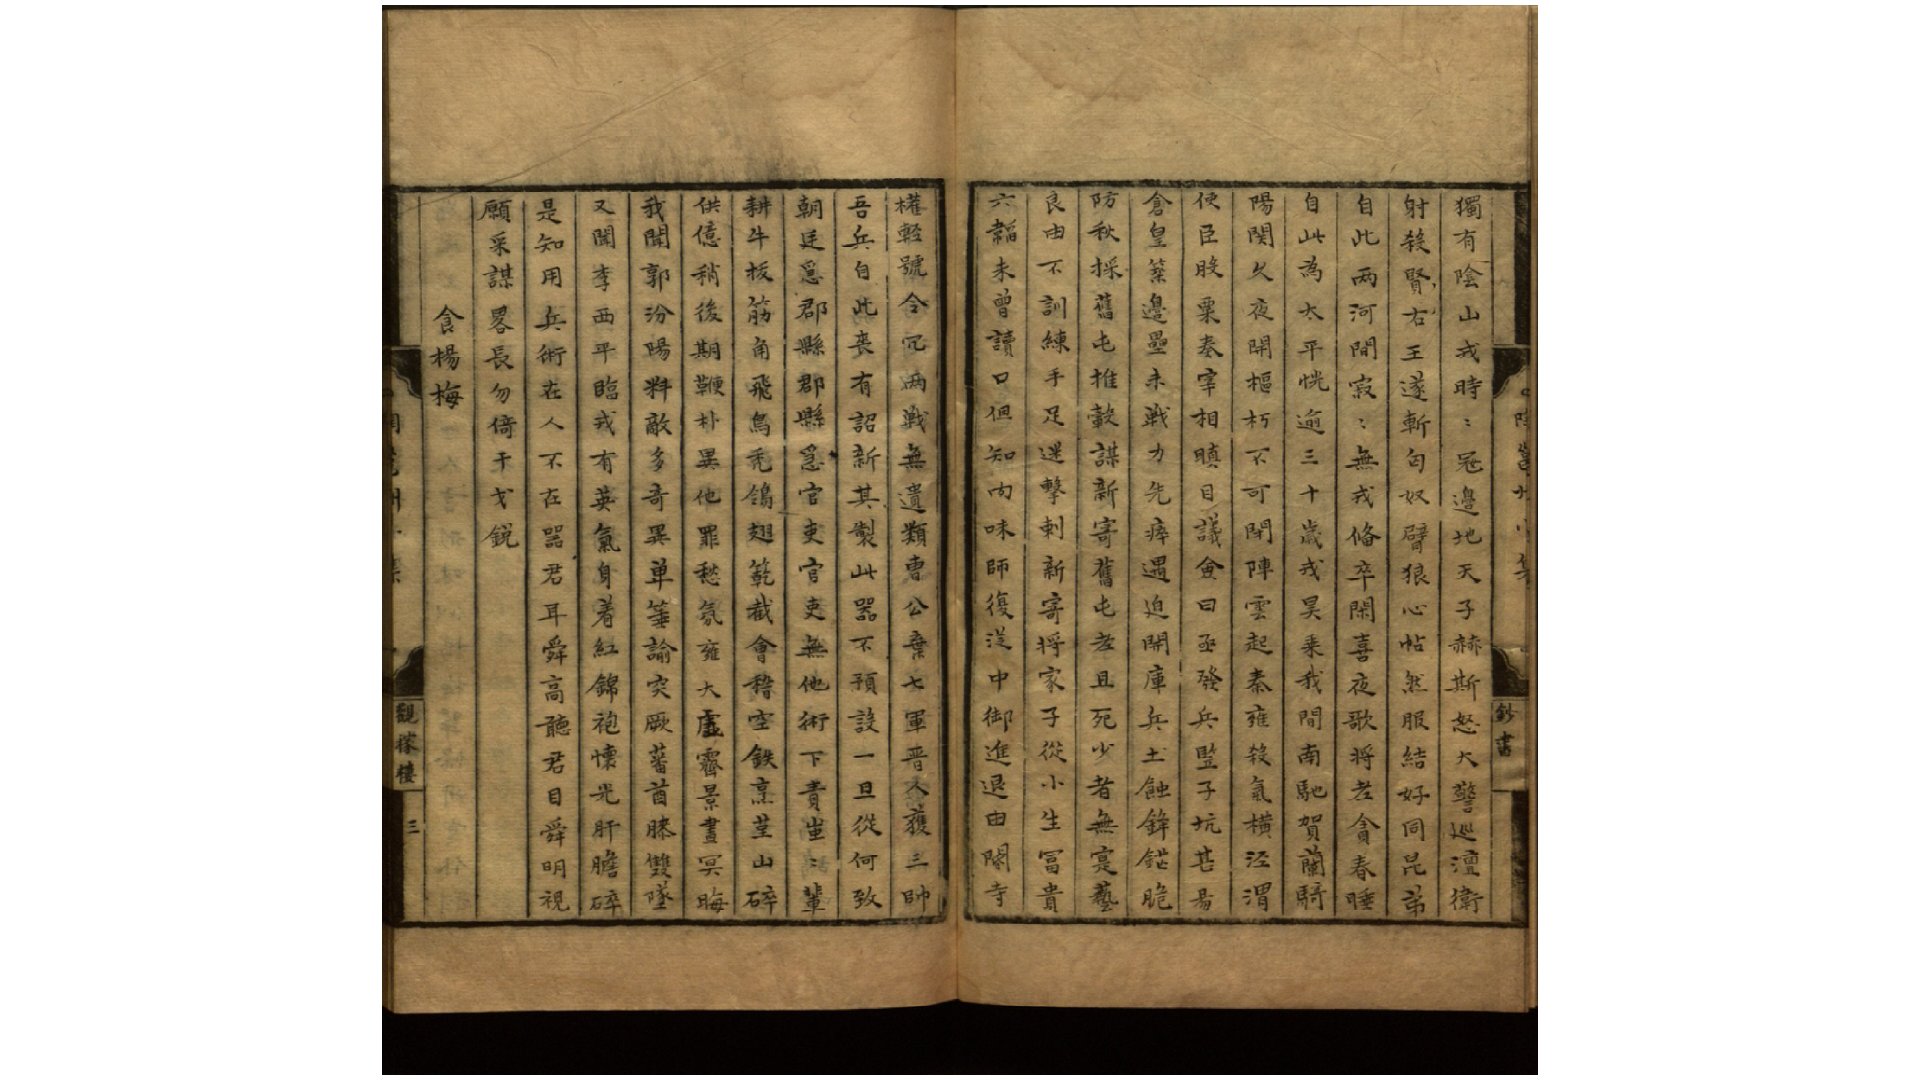 獨有陰山戎時〻冦邊地天子赫斯怒大警巡澶衛
射殺賢右王遂斬匈奴臂狼心帖然服結好同昆弟
自此两河間寂〻無戎俻卒閑喜夜歌将老貪春睡
自此為太平恍逾三十歲戎昊乘我間南馳賀蘭騎
陽関久夜開樞朽不可閉陣雲起秦雍殺氣横涇渭
使臣股栗奏宰相瞋目議僉曰亟發兵竪子坑甚易
倉皇築邊壘未戦力先瘁遇迫開庫兵土蝕鋒鋩脆
防秋採舊屯推轂謀新寄舊屯老且死少者無寔藝
良由不訓練手足迷擊刺新寄将家子從小生冨貴
六韜未曾讀口但知肉味師復従中御進退由閹寺
權輕號令冗两戦無遺類曹公棄七軍晋人獲三帥
吾兵自此喪有詔新其製此噐不預設一旦從何致
朝廷爲郡縣郡縣爲官吏官吏無他術下責蚩〻輩
耕牛拔筋角飛鳥禿鴒翅簕截會稽空鉄烹堇山碎
供億稍後期鞭朴異他罪愁氛雍大虗霽景晝冥晦
我聞郭汾陽料敵多奇異单䇿諭突厥蕃酋膝雙墜
又聞李西平臨戎有英氣身着紅錦袍懷光肝膽碎
是知用兵術在人不在噐君耳舜高聽君目舜明視
願采謀畧長勿倚干戈銳
食楊梅
鈔書
觀稼樓
三